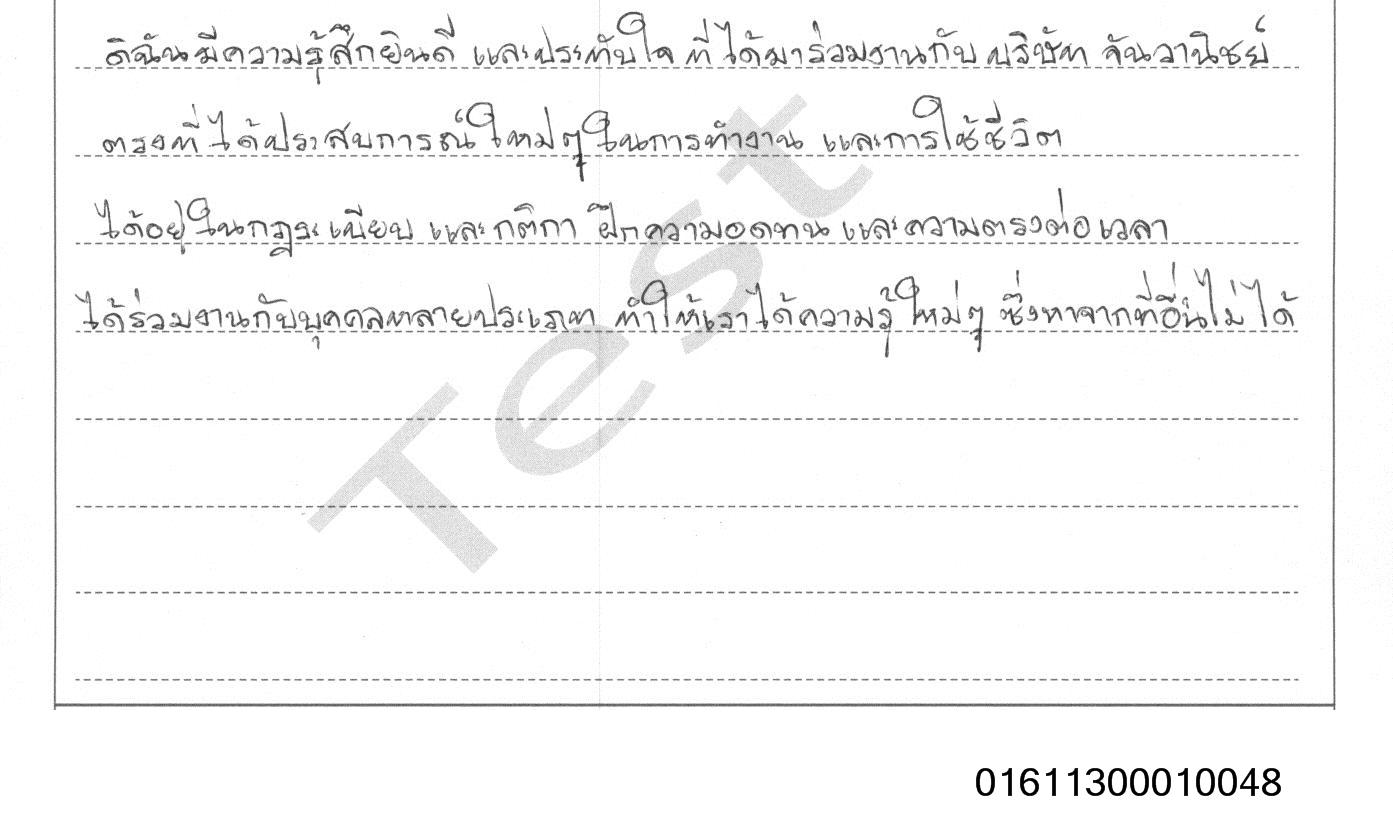 ดิฉันมีความรู้สึกยินดี และประทับใจ ที่ได้มาร่วมงานกับ บริษัท จันวานิชย์
ตรงที่ได้ประสบการณ์ใหม่ๆในการทำงาน และการใช้ชีวิต
ได้อยู่ในกฎระเบียบ และกติกา ฝึกความอดทน และความตรงต่อเวลา
ได้ร่วมงานกับบุคคลหลายประเภท ทำให้เราได้ความรู้ใหม่ๆ ซึ่งหาจากที่อื่นไม่ได้
Test
01611300010048